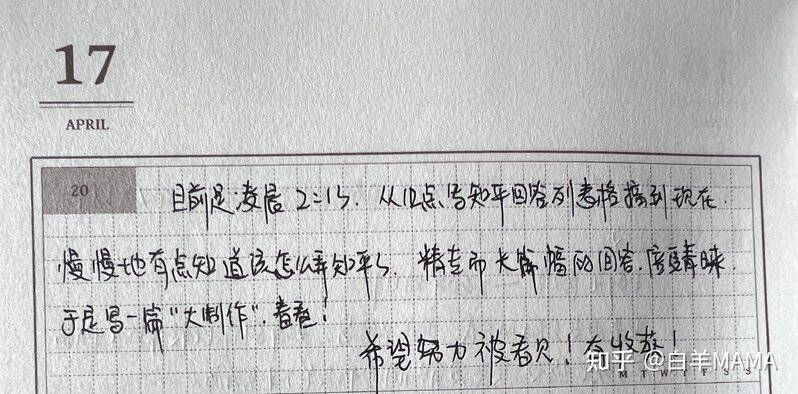 17
APRIL
20
目前是凌晨2:15. 从12点写知乎回答列表格搞到现在.
慢慢地有点知道该怎么弄知乎了. 精专而大篇幅的回答.受青睐.
于是写一篇“大制作”.看看!
希望努力被看见!有收获!
知乎 @白羊MAMA
M T W T F S S